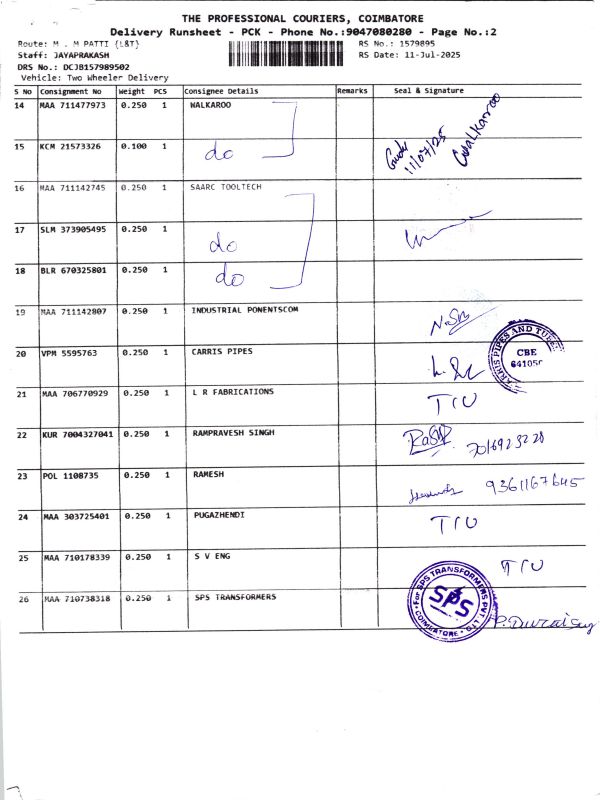 THE PROFESSIONAL COURIERS, COIMBATORE
Delivery Runsheet - PCK - Phone No.:9047080280 - Page No.:2
Route: M . M PATTI {L&T} RS No.: 1579895
Staff: JAYAPRAKASH RS Date: 11-Jul-2025
DRS No.: DCJB157989502
Vehicle: Two Wheeler Delivery
S No Consignment No Weight PCS Consignee Details Remarks Seal & Signature
14 MAA 711477973 0.250 1 WALKAROO
15 KCM 21573326 0.100 1 do 11/07/25 Walkaroo
16 MAA 711142745 0.250 1 SAARC TOOLTECH
17 SLM 373905495 0.250 1 do
18 BLR 670325801 0.250 1 do
19 MAA 711142807 0.250 1 INDUSTRIAL PONENTSCOM
20 VPM 5595763 0.250 1 CARRIS PIPES
PIPES AND TUBE
CBE
21 MAA 706770929 0.250 1 L R FABRICATIONS
22 KUR 7004327041 0.250 1 RAMPRAVESH SINGH
23 POL 1108735 0.250 1 RAMESH 9361167645
24 MAA 303725401 0.250 1 PUGAZHENDI
25 MAA 710178339 0.250 1 S V ENG
26 MAA 710738318 0.250 1 SPS TRANSFORMERS
For SPS TRANSFORMERS PVT. LTD.
SPS
COIMBATORE